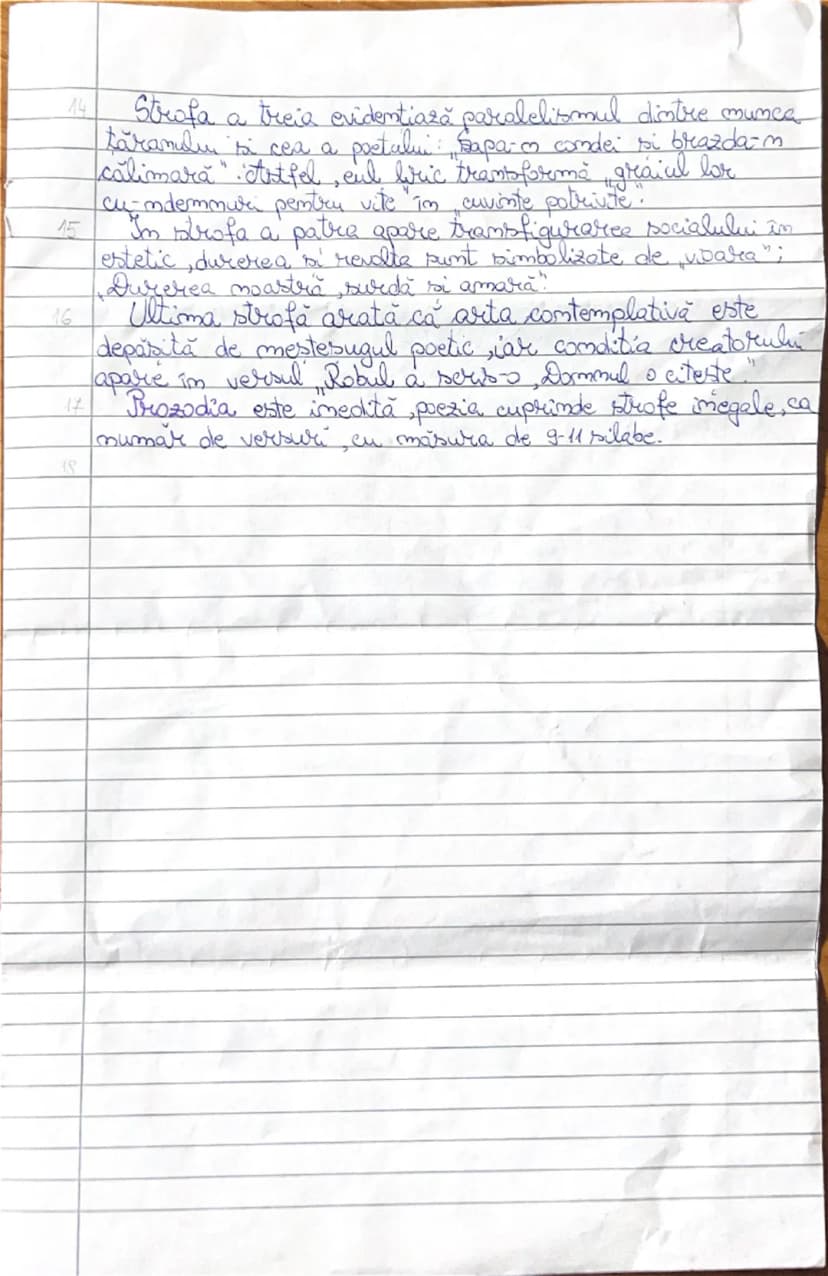 14 Strofa a treia evidentiază paralelismul dintre munca
țăranului si cea a poetului: „Sapa-n condei si brazda-n
călimară". Astfel, eul liric transformă „graiul lor
cu-ndemnuri pentru vite" în „cuvinte potrivite".
15 În strofa a patra apare transfigurarea socialului în
estetic, durerea si revolta sunt simbolizate de „vioara";
„Durerea noastră, surdă si amară".
16 Ultima strofă arată că arta contemplativă este
depăsită de mestesugul poetic, iar conditia creatorului
apare în versul „Robul a scris-o, Domnul o citeste."
17 Prozodia este inedită, poezia cuprinde strofe inegale, ca
număr de versuri, cu măsura de 9-11 silabe.
18